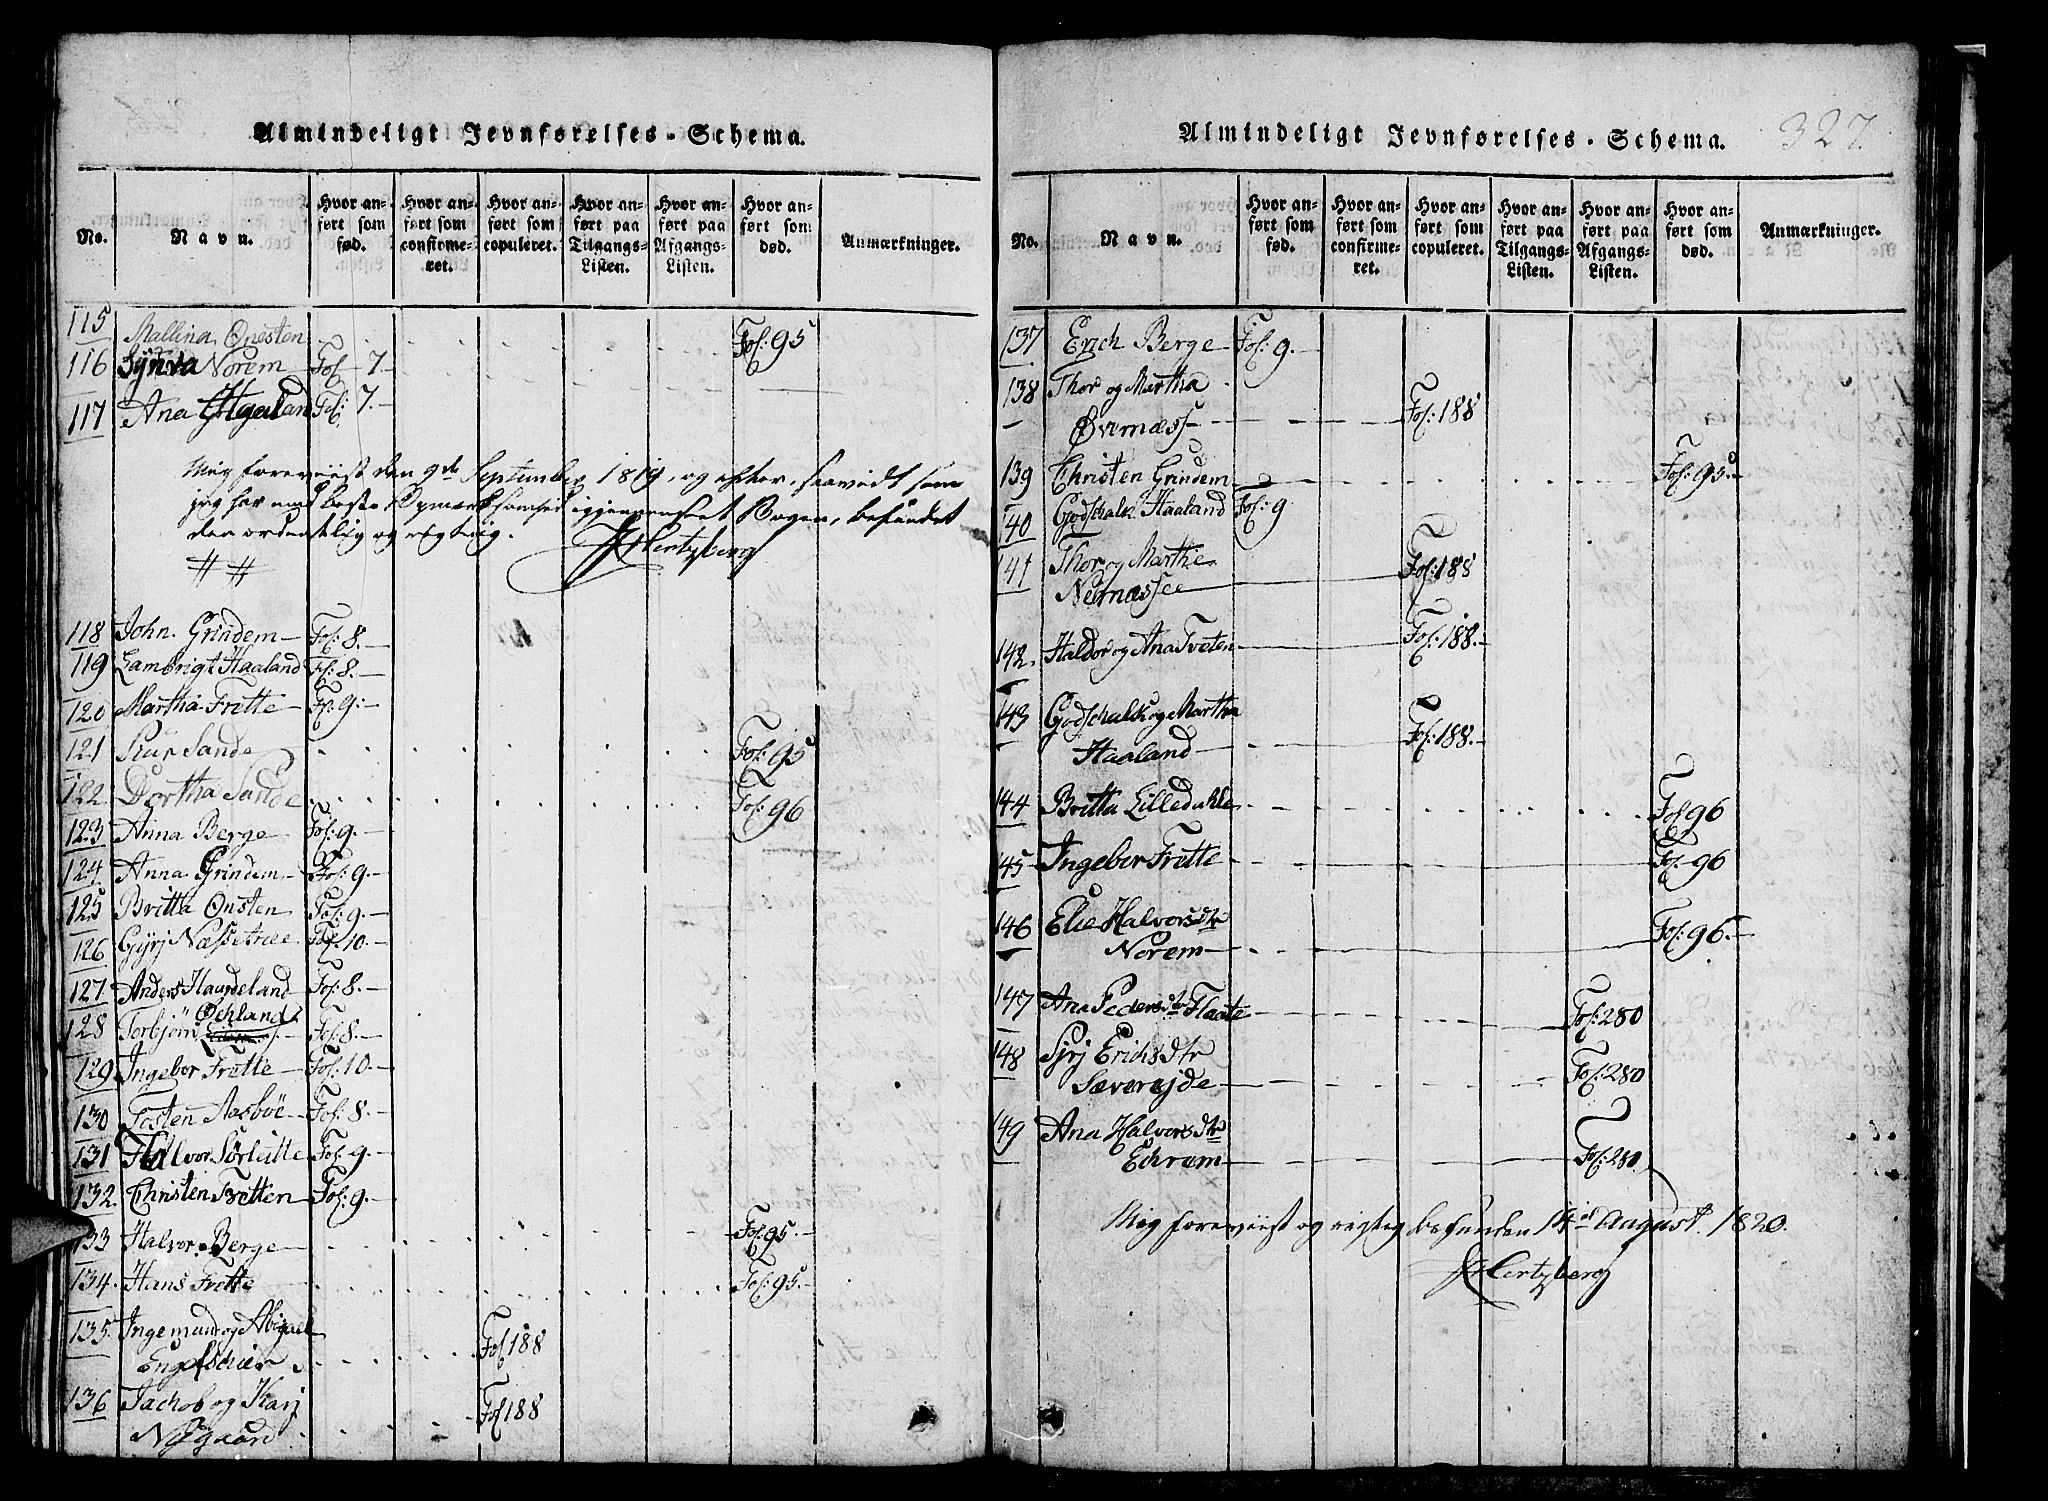 Almindeligt Jevnførelses-Schema.
No. Navn. Hvor anført som fød. Hvor anført som confirmeret. Hvor anført som copuleret. Hvor anført paa Tilgangs-Listen. Hvor anført paa Afgangs-Listen. Hvor anført som død. Anmærkninger.
115 Mallina Onesten Fol: 95
116 Synva Norem Fol 7.
117 Ana Fol: 7.
Mig foreviist den 9de September 1819, og efter, saavidt som
jeg har med beste Opmærksomhed igjennemseet Bogen, befundet
den ordentlig og rigtig.
Hertzberg
118 John Grindem Fol: 8.
119 Lambrigt Haaland Fol: 8.
120 Martha Frette Fol: 9.
121 Siur Sande Fol: 95
122 Dortha Sande Fol: 96
123 Anna Berge Fol: 9.
124 Anna Grindem Fol: 9.
125 Britta Onsten Fol: 9.
126 Gyrj Næssetræe Fol: 10.
127 Anders Haugeland Fol: 8.
128 Torbjørn Øchland Fol: 8.
129 Ingebor Frette Fol: 10.
130 Tosten Aasbøe Fol: 8.
131 Halvor Sørlutte Fol: 9.
132. Christen Tvetten Fol: 9.
133 Halvor Berge Fol: 95.
134. Hans Frette Fol: 95.
135. Ingemund og Abigael
Engelschiær Fol 188
136 Jachob og Karj
Nægaard Fol 188
Almindeligt Jevnførelses-Schema. 327.
No. Navn. Hvor anført som fød. Hvor anført som confirmeret. Hvor anført som copuleret. Hvor anført paa Tilgangs-Listen. Hvor anført paa Afgangs-Listen. Hvor anført som død. Anmærkninger.
137 Erich Berge Fol: 9.
138 Thor og Martha
Øvernæss Fol: 188
139 Christen Grindem Fol: 95.
140 Godschalk Haaland Fol: 9
141 Thor og Marthe
Nernæssee Fol: 188
142. Haldor og Ana Tveten Fol: 188.
143 Godschalk og Martha
Haaland Fol: 188.
144 Britta Lilledahle Fol 96
145 Ingebor Frette Fol: 96
146 Elie Halvorsdtr
Norem Fol: 96.
147 Ana Pedersdtr Flaate Fol: 280
148 Syrj Erichsdtr
Sæverejde Fol: 280
149 Ana Halvorsdtr
Echrem Fol: 280
Mig foreviist og rigtig befunden 14de August 1820.
Hertzberg